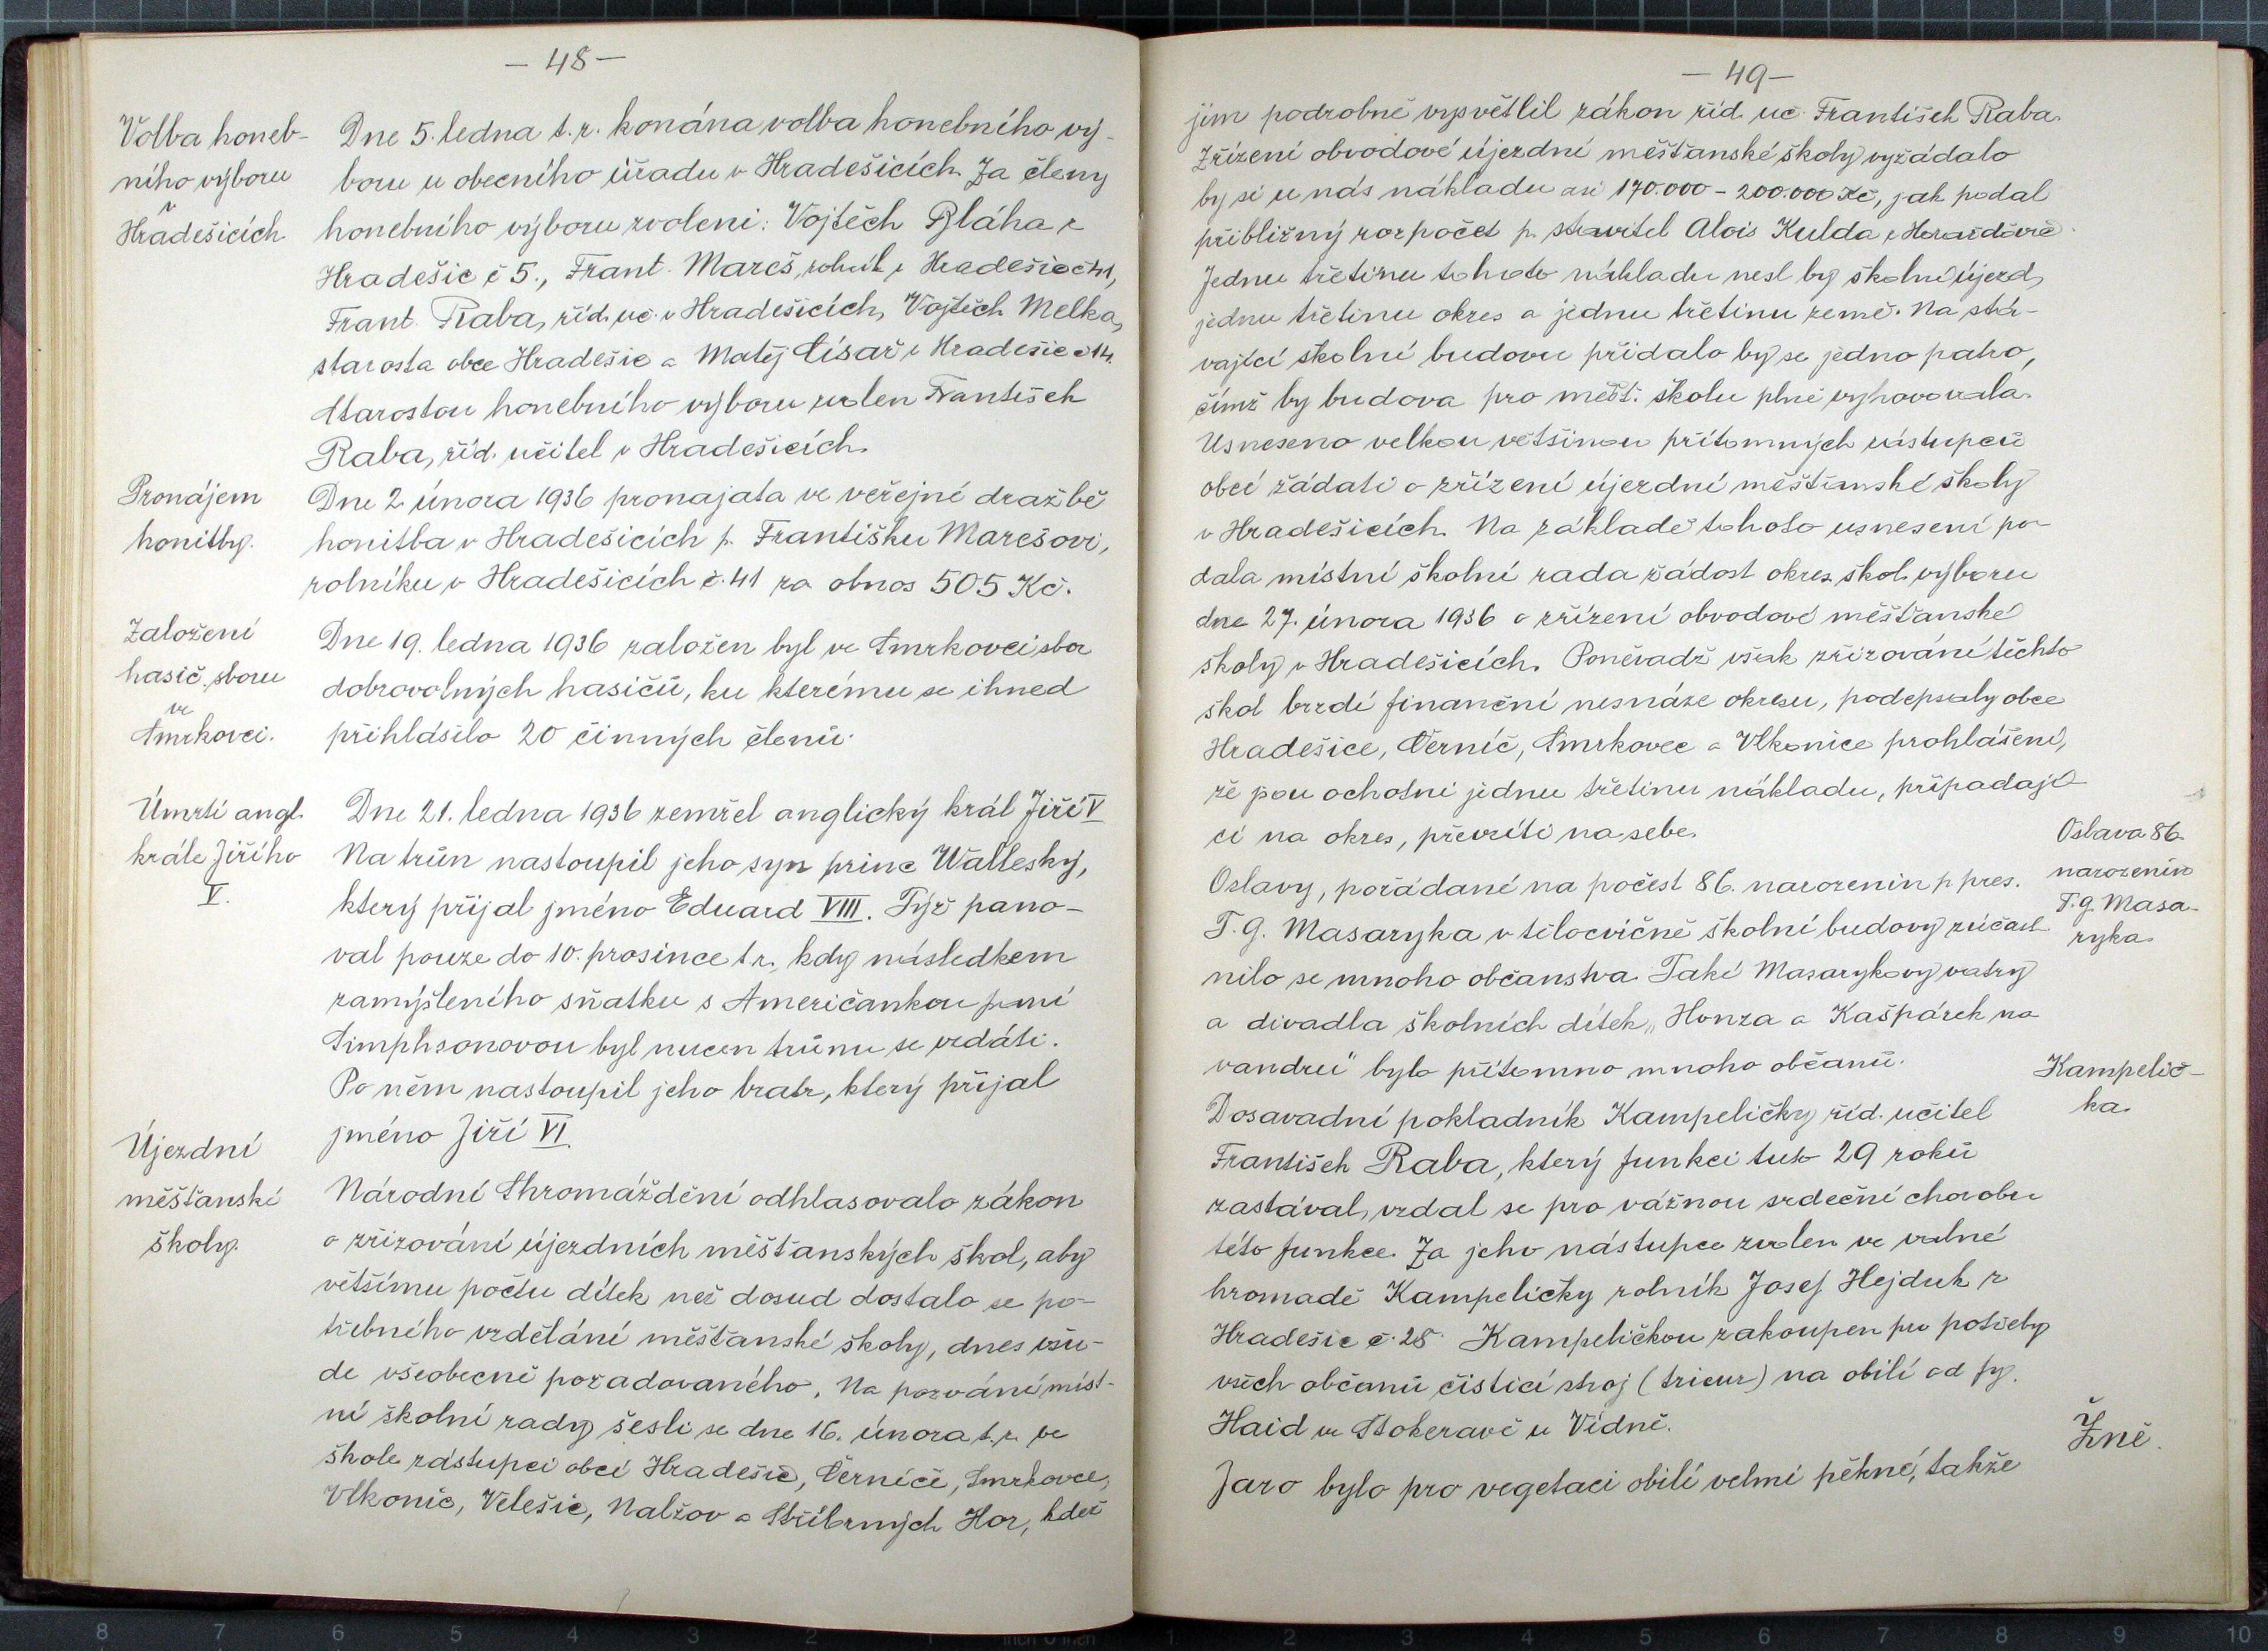 - 48 -
Volba honeb-
ního výboru
v
Hradešicích
Dne 5. ledna t. r. konána volba honebního vý-
boru u obecního úřadu v Hradešicích. Za členy
honebního výboru zvoleni: Vojtěch Bláha z
Hradešic č 5., Frant. Mareš, rolník z Hradešic č 41,
Frant. Raba, říd. uč. v Hradešicích, Vojtěch Melka,
starosta obce Hradešic a Matěj Císař z Hradešic č 14.
Starostou honebního výboru zvolen František
Raba, říd. učitel v Hradešicích.
Pronájem
honitby.
Dne 2. února 1936 pronajata ve veřejné dražbě
honitba v Hradešicích p. Františku Marešovi,
rolníku v Hradešicích č. 41 za obnos 505 Kč.
Založení
hasič. sboru
ve
Smrkovci.
Dne 19. ledna 1936 založen byl ve Smrkovci sbor
dobrovolných hasičů, ku kterému se ihned
přihlásilo 20 činných členů.
Úmrtí angl.
krále Jiřího
V.
Dne 21. ledna 1936 zemřel anglický král Jiří V
Na trůn nastoupil jeho syn princ Walleský,
který přijal jméno Eduard VIII. Týž pano-
val pouze do 10. prosince t. r., kdy následkem
zamýšleného sňatku s Američankou paní
Simphsonovou byl nucen trůnu se vzdáti.
Po něm nastoupil jeho bratr, který přijal
jméno Jiří VI.
Újezdní
měšťanské
školy.
Národní Shromáždění odhlasovalo zákon
o zřizování újezdních měšťanských škol, aby
většímu počtu dítek než dosud dostalo se po-
třebného vzdělání měšťanské školy, dnes všu-
de všeobecně požadovaného. Na pozvání míst-
ní školní rady sešli se dne 16. února t. r. ve
škole zástupci obcí Hradešic, Černíče, Smrkovce,
Vlkonic, Velešic, Nalžov a Stříbrných Hor, kdež
- 49 -
jim podrobně vysvětlil zákon říd. uč. František Raba.
Zřízení obvodové újezdní měšťanské školy vyžádalo
by si u nás nákladu asi 170.000 - 200.000 Kč, jak podal
přibližný rozpočet p. stavitel Alois Kulda z Horažďovic.
Jednu třetinu tohoto nákladu nesl by školní újezd,
jednu třetinu okres a jednu třetinu země. Na stá-
vající školní budovu přidalo by se jedno patro,
čímž by budova pro měšť. školu plně vyhovovala.
Usneseno velkou většinou přítomných zástupců
obcí žádati o zřízení újezdní měšťanské školy
v Hradešicích. Na základě tohoto usnesení po-
dala místní školní rada žádost okres. škol. výboru
dne 27. února 1936 o zřízení obvodové měšťanské
školy v Hradešicích. Poněvadž však zřizování těchto
škol brzdí finanční nesnáze okresu, podepsaly obce
Hradešice, Černíč, Smrkovec a Vlkonice prohlášení,
že jsou ochotni jednu třetinu nákladu, připadají-
cí na okres, převzíti na sebe.
Oslava 86.
narozenin
T. G. Masa-
ryka.
Oslavy, pořádané na počest 86. narozenin p. pres.
T. G. Masaryka v tělocvičně školní budovy zúčast-
nilo se mnoho občanstva. Také Masarykovy vatry
a divadla školních dítek „Honza a Kašpárek na
vandru" bylo přítomno mnoho občanů.
Kampelič-
ka.
Dosavadní pokladník Kampeličky říd. učitel
František Raba, který funkci tuto 29 roků
zastával, vzdal se pro vážnou srdeční chorobu
této funkce. Za jeho nástupce zvolen ve valné
hromadě Kampeličky rolník Josef Hejduk z
Hradešic č. 28. Kampeličkou zakoupen pro potřeby
všech občanů čistící stroj (trieur) na obilí od fy.
Haid ve Stokeravě u Vídně.
Žně.
Jaro bylo pro vegetaci obilí velmi pěkné, takže
8 7 6 5 4 3 2 1 inch 0 inch 1 2 3 4 5 6 7 8 9 10